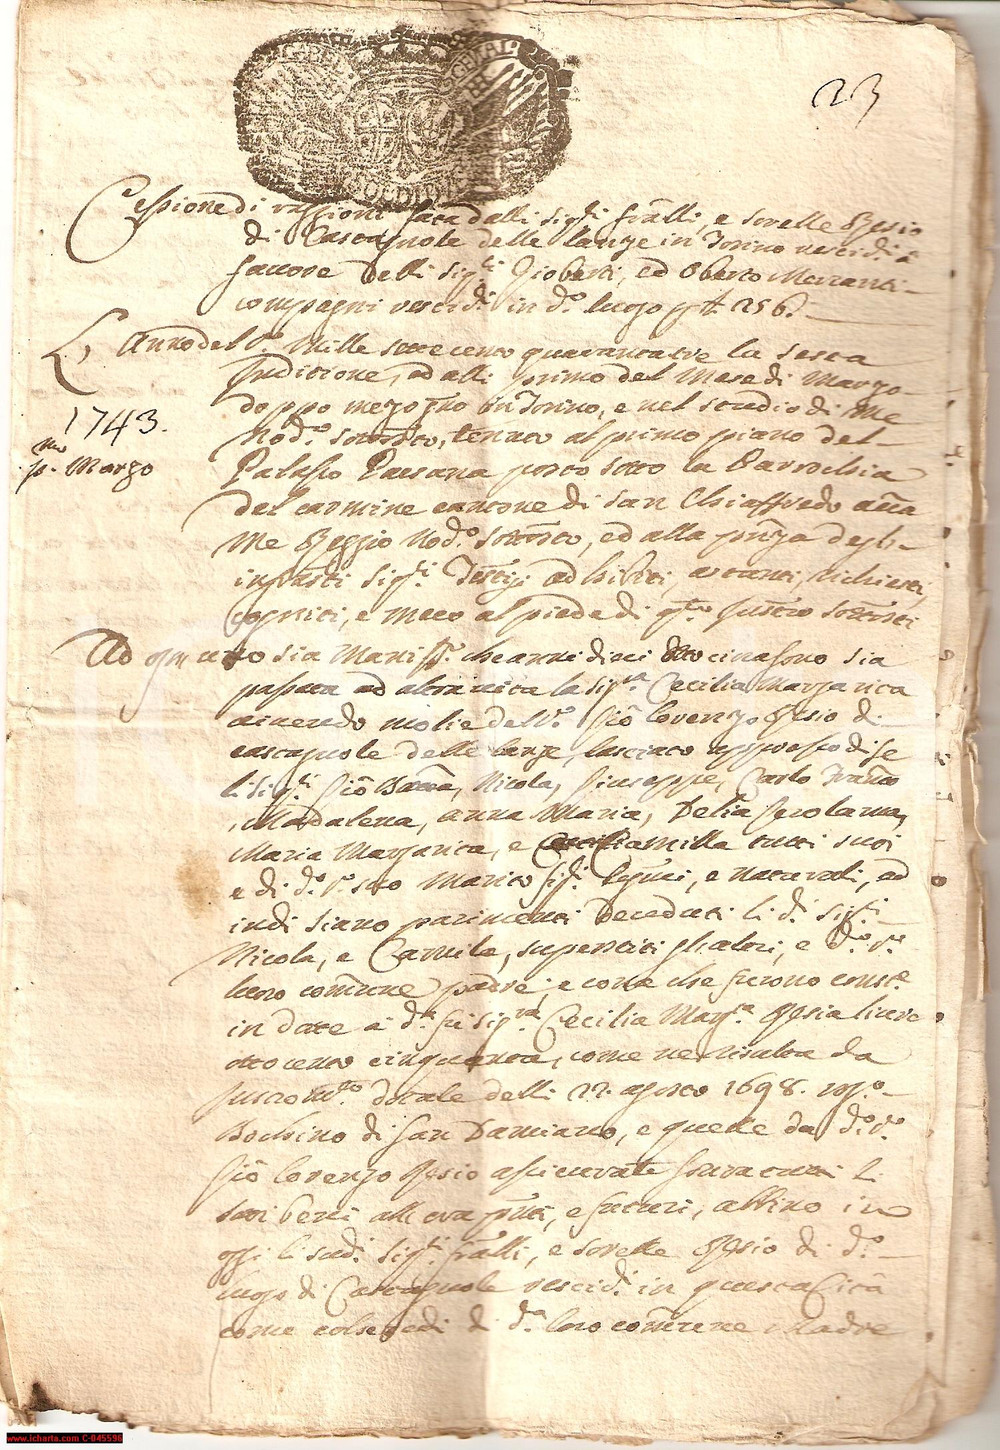 23
Cessione di raggioni fatta dalli sig.ri fr̃elli, e sorelle Gesio
di Castagnole delle lanze in Torino resid.ti a
favore delli sig.ri Gioberti, ed Oberto Mercanti
compagni resid.ti in d.o luogo p L. 256.
L'Anno del S.r Mille sette cento quaranta tre la sesta
Inditione, ed alli primo del Mese di Marzo
doppo mezogno in Torino, e nel studio di Me
Nod.o sottto, tenuto al primo piano del
Palasso Paesana posto sotto la Parrochia
del carmine cantone di san Chiaffredo avã
Me Reggio Nod.o sottto, ed alla pñza degl'
infrãtti sig.ri Testij adhibiti, astanti, richiesti,
cogniti, e meco al piede di q.to Instro sottti
1743.
p.mo Marzo
Ad ogn uno sia Manif.o che anni dieci otto cira sono sia
passata ad altra vita la sig.ra Cecilia Margarita
moglie del S.r Giõ lorenzo Gesio di
castagnole delle lanze, lasciato appresso di se
li sig.ri Giõ Batta, Nicola, Giuseppe, Carlo Franco
Madalena, Anna Maria, Delia Gerolama,
Maria Margarita, e Camilla tutti suoi
e di d.o S.r suo Marito figli legmi, e naturali, ed
indi siano parimenti deceduti li d.i sig.ri
Nicola, e Camila, superstiti gl'altri, e d.o S.r
loro comune padre, e come che furono const.e
in dote a d.a fu sig.ra Cecilia Marg.ta Gesia livre
otto cento cinquanta, come ne risulta da
Instrom.o dotale delli 22. agosto 1698. rog.o
Bochino di san Damiano, e quelle da d.o S.r
Giõ lorenzo Gesio assicurate sovra tutti li
suoi beni all'ora pñti, e futuri, abbino in
oggi li sud.i sig.ri fr̃elli, e sorelle Gesio di d.o
luogo di Castagnole resid.ti in questa Città
come eredi di d.a loro comune Madre
www.icharta.com C-045596